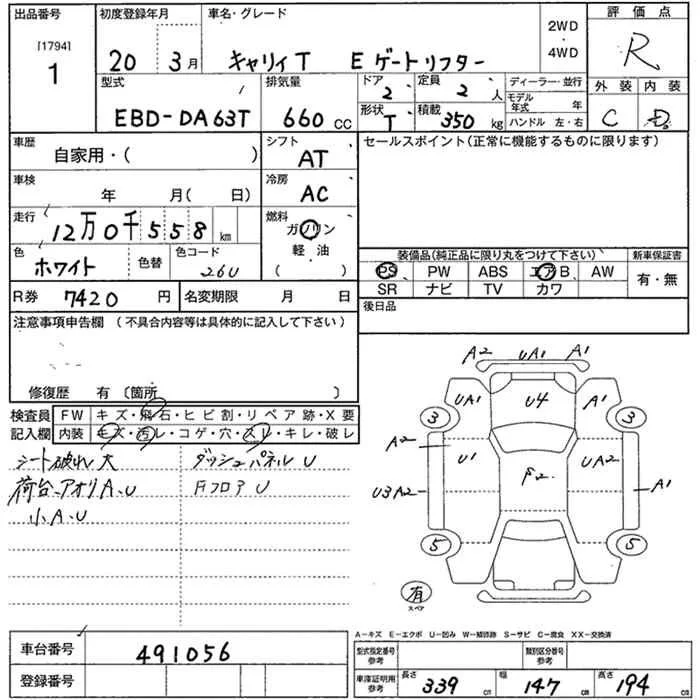 出品番号 初度登録年月 車名・グレード 2WD 評価点
[1794]
1 20 3月 キャリィT Eゲートリフター ・ 4WD R
型式 排気量 ドア 2 定員 2人 ディーラー・並行 外装 内装
EBD-DA63T 660 CC 形状 T 積載 350 kg モデル年式 年 ハンドル 左・右 C D
車歴 自家用・( ) シフト AT セールスポイント(正常に機能するものに限ります)
車検 年 月( 日) 冷房 AC
走行 12万0千558km 燃料 ガソリン
軽・油
( )
色 ホワイト 色替 色コード 26U
装備品(純正品に限り丸をつけて下さい) 新車保証書
PS PW ABS エアB AW 有・無
SR ナビ TV カワ
R券 7420円 名変期限 月 日 後日品
注意事項申告欄 (不具合内容等は具体的に記入して下さい)
修復歴 有 〔箇所 〕
検査員 FW キズ・飛石・ヒビ割・リペア跡・X要
記入欄 内装 キズ・汚レ・コゲ・穴・スレ・キレ・破レ
シート破れ大 ダッシュパネルU
荷台、アオリA、U Fフロア U
小A、U
A2 UA1 A1
UA1 U4 A1
3 3
A2 U1 F2 UA2
U3A2 A1
5 5
有
スペア
A−キズ E−エクボ U−凹み W−補修跡 S−サビ C−腐食 XX−交換済
車台番号 491056
登録番号
型式指定番号 参考 類別区分番号 参考
車庫証明用 参考 長さ 339 cm 幅 147 cm 高さ 194 cm